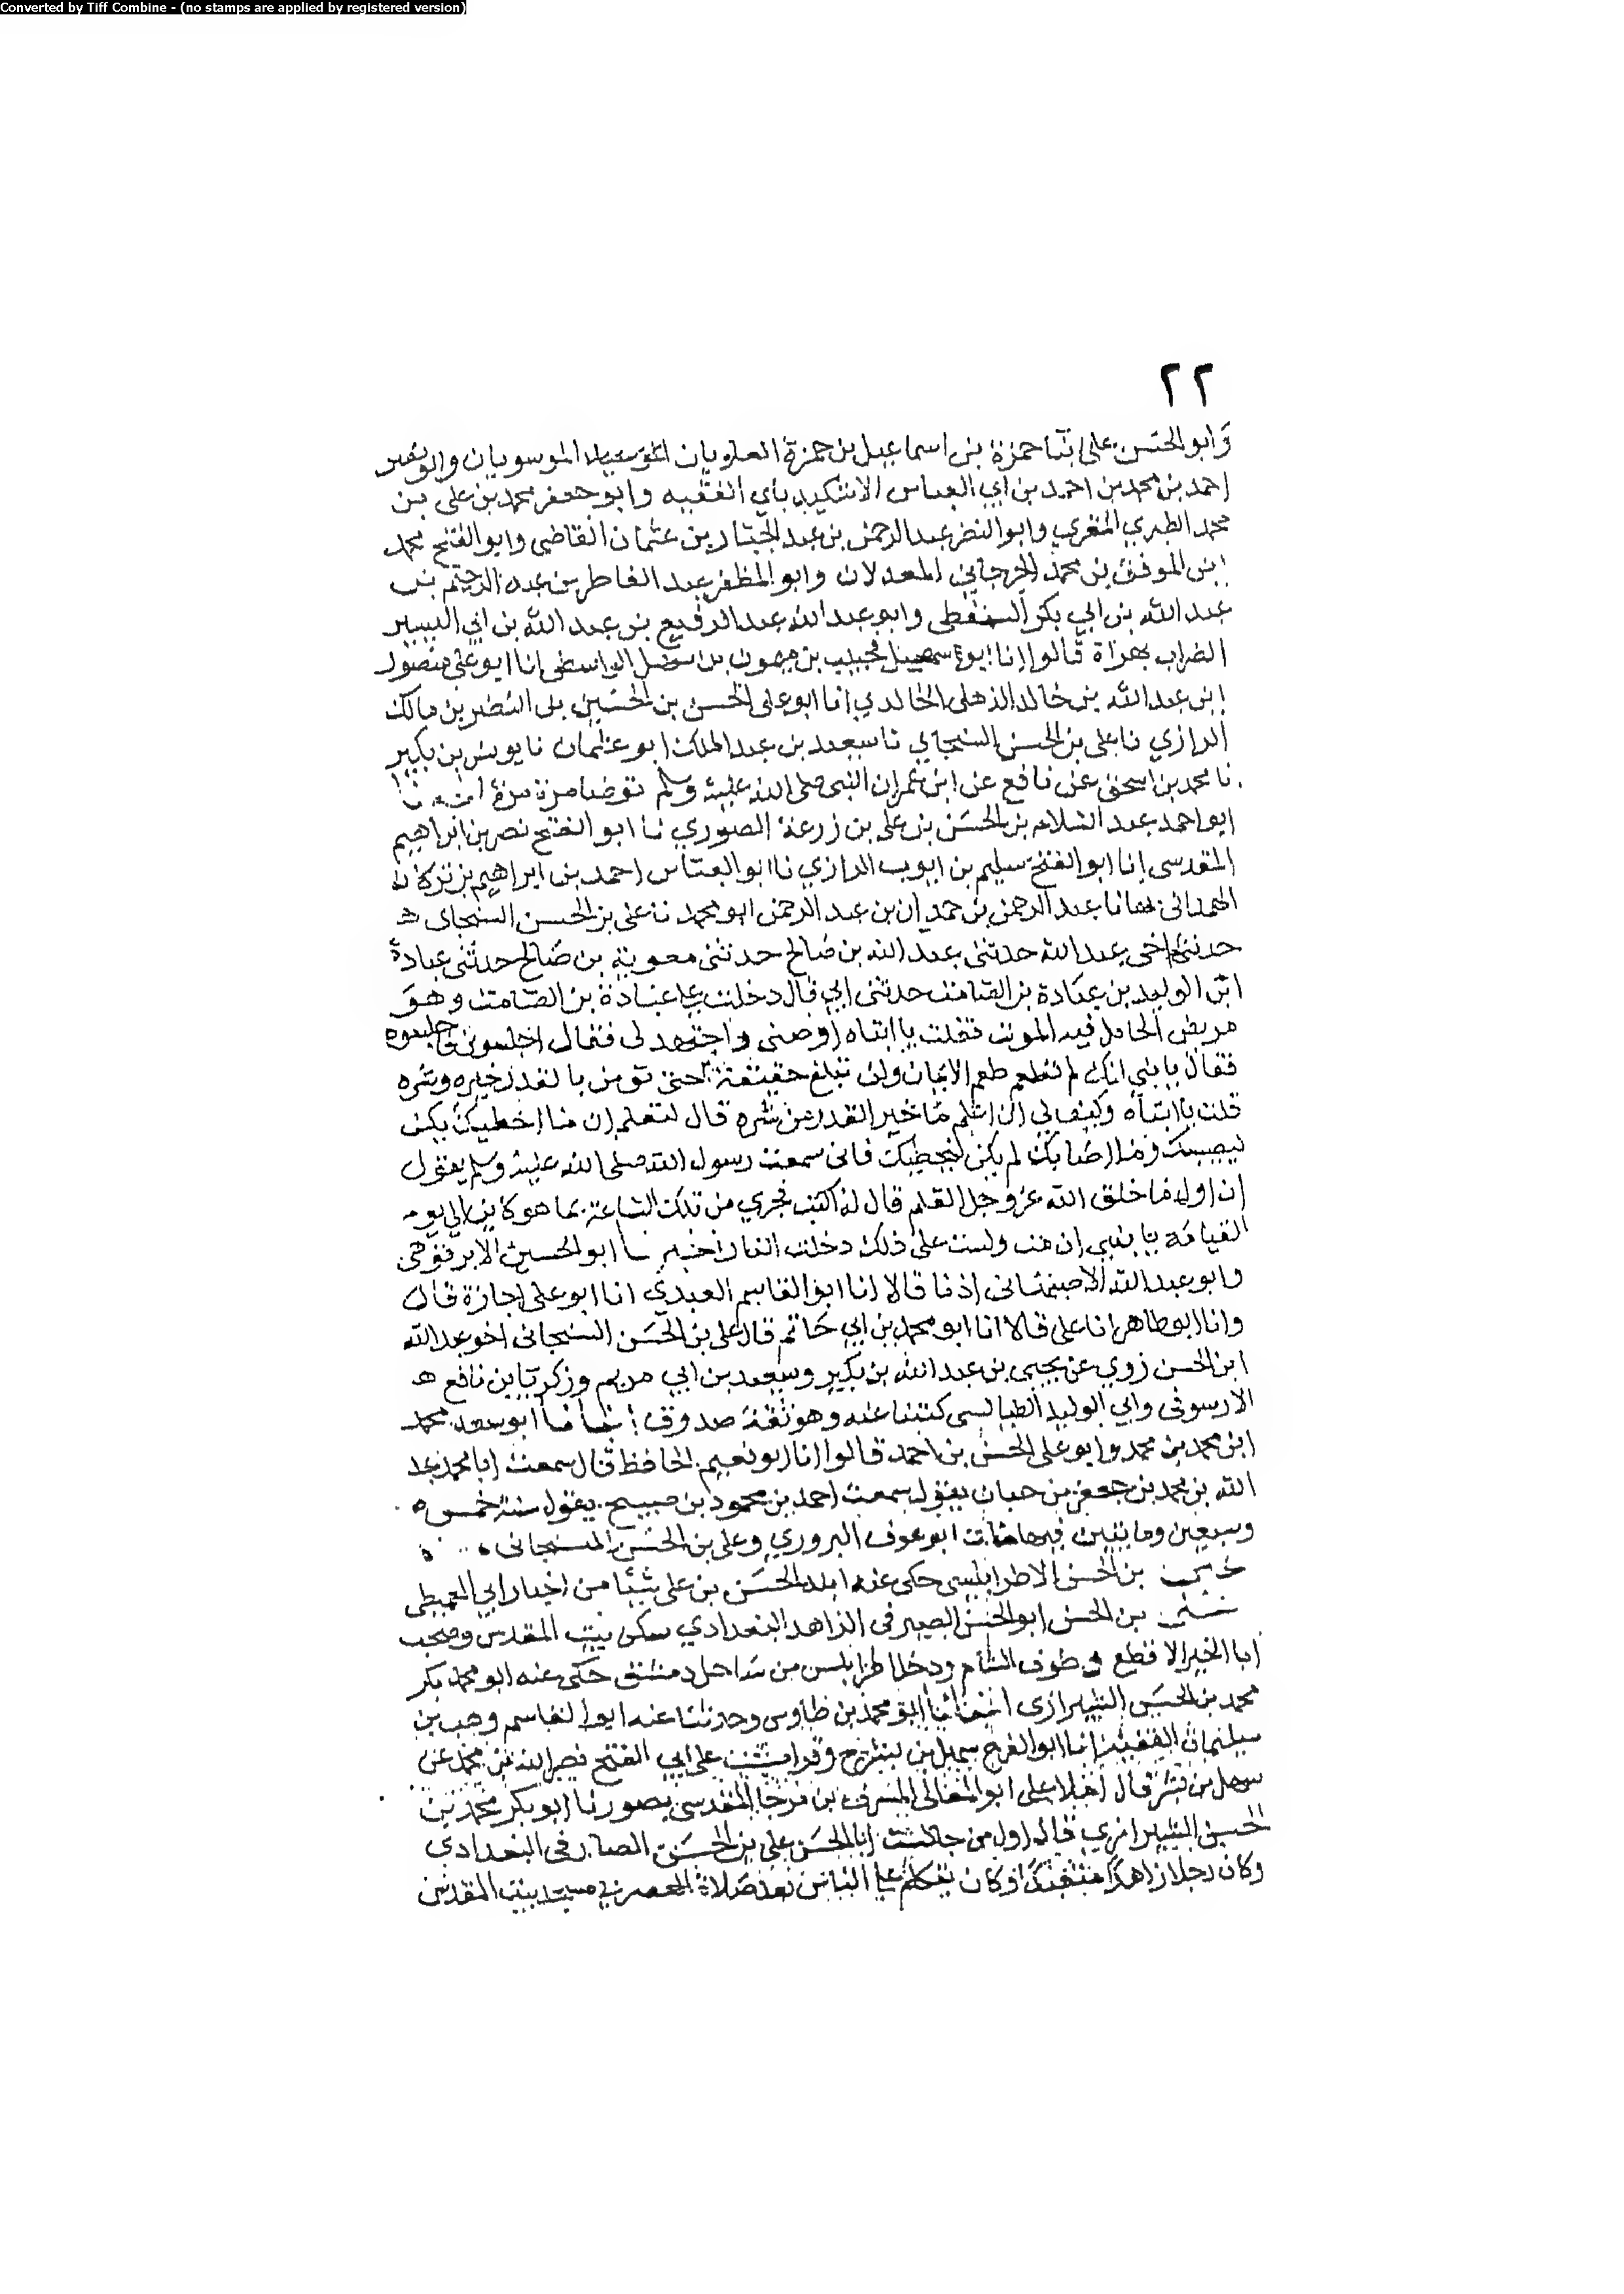 Converted by Tiff Combine - (no stamps are applied by registered version)
٢٢
وابو الحسن على ابنا حمزة بن اسماعيل بن حمزة العلويان الموسويان وابو نصر
احمد بن محمد بن احمد بن ابي العباس الفقيه وابو جعفر محمد بن على بن
محمد الطبري المغري وابو النضر عبد الرحمن بن عبد الجبار بن عثمان القاضي وابو الفتح محمد
ابن الموفق بن محمد الجرجاني المعدلان وابو المظفر عبد الفاطر بن عبد الرحيم بن
عبد الله بن ابي بكر السقطى وابو عبد الله عبد الرفيع بن عبد الله بن ابي اليسير
الضراب بهراة قالوا انا ابو سهل نجيب بن ميمون بن سهل الواسطى انا ابو على منصور
ابن عبد الله بن خالد الذهلى الخالدي انا ابو على الحسن بن الحسين بن النضر بن مالك
الرازي نا على بن الحسن السنجاني نا سعيد بن عبد الملك ابو عثمان نا يونس بن بكير
نا محمد بن اسحق عن نافع عن ابن عمر ان النبي صلى الله عليه وسلم توضا مرة مرة
ابو احمد عبد السلام بن الحسن بن على بن زرعة الصوري نا ابو الفتح نصر بن ابراهيم
المقدسى انا ابو الفتح سليم بن ايوب الرازي نا ابو العباس احمد بن ابراهيم بن تركان
الهمدانى نا عبد الرحمن بن حمدان بن عبد الرحمن ابو محمد نا على بن الحسن السنجانى ه
حدثنى اخى عبد الله حدثنى عبد الله بن صالح حدثنى معوية بن صالح حدثنى عبادة
ابن الوليد بن عبادة بن الصامت حدثنى ابي قال دخلت على عبادة بن الصامت وهو
مريض فيه الموت فقلت يا ابتاه اوصنى واجتهد لى فقال اجلسونى فاجلسوه
فقال يا بني انك لم تطعم طعم الايمان ولن تبلغ حقيقة حتى تومن بالقدر خيره وشره
قلت يا ابتاه وكيف لي ان اعلم ما خير القدر من شره قال لتعلم ان ما اخطيك يكن
ليصيبك وما اصابك لم يكن ليخطيك فانى سمعت رسول الله صلى الله عليه وسلم يقول
ان اول ما خلق الله عز وجل القلم قال له اكتب فجري من تلك الساعة بما هو كاين الى يوم
القيامة يا بني ان مت ولست على ذلك دخلت النار اخبرنا ابو الحسين الابرقوهي
وابو عبد الله الاصبهانى اذنا قالا انا ابو القاسم العبدي انا ابو على اجازة قال
وانا ابو طاهر انا على قالا انا ابو محمد بن ابي حاتم قال على بن الحسن السنجانى اخو عبد الله
ابن الحسن روي عن يحيى بن عبد الله بن بكير وسعيد بن ابي مريم وزكريا بن نافع ه
الارسوفى وابي الوليد الطيالسى كتبنا عنه وهو ثقة صدوق انبانا ابو سعد محمد
ابن محمد بن محمد وابو على الحسن بن احمد قالوا انا ابو نعيم الحافظ قال سمعت ابا محمد عبد
الله بن محمد بن جعفر بن حبان يقول سمعت احمد بن محمود بن صبيح يقول سنة خمس
وسبعين ومايتين فيها مات ابو عوف البزوري وعلى بن الحسن السنجانى
على بن الحسن الاطرابلسى حكى عنه ابنه الحسن بن على شيئا من اخبار ابي العميطى
على بن الحسن ابو الحسن الصيرفى الزاهد البغدادي سكن بيت المقدس وصحب
ابا الخير الاقطع وطوف الشام ودخل اطرابلس من ساحل دمشق حكى عنه ابو محمد بكر
محمد بن الحسن الشيرازى انبانا ابو محمد بن طاوس وحدثنا عنه ابو القاسم وهب بن
سليمان الفقيه انا ابو الفرج سهل بن بشر ح وقرات على ابي الفتح نصر الله بن محمد عن
سهل بن بشر قال املا على ابو المعالى المشرف بن مرجا المقدسى بصور نا ابو بكر محمد بن
الحسن الشيرازي قال اول من جالست ابا الحسن على بن الحسن الصيرفى البغدادي
وكان رجلا زاهدا متعبدا وكان يتكلم على الناس بعد صلاة العصر في مسجد بيت المقدس